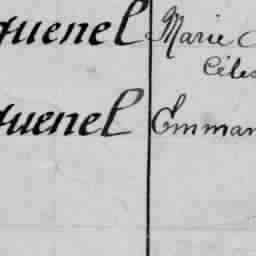 quenel Marie
Céles
quenel Emman